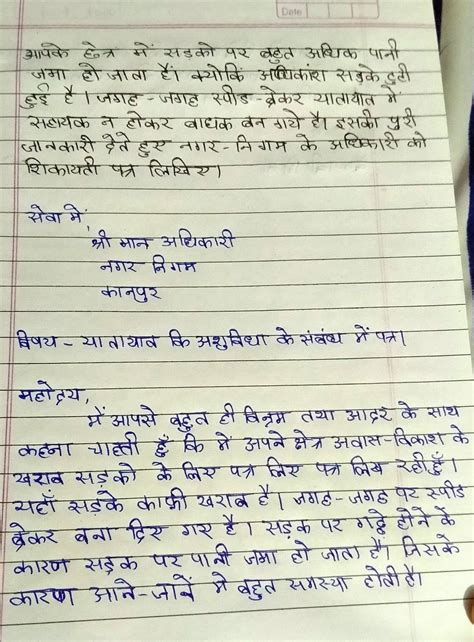 Date
आपके क्षेत्र में सड़को पर बहुत अधिक पानी
जमा हो जाता हैं। क्योकि अधिकांश सड़के टुटी
हुई है। जगह-जगह स्पीड-ब्रेकर यातायात मे
सहायक न होकर बाधक बन गये है। इसकी पुरी
जानकारी देते हुए नगर-निगम के अधिकारी को
शिकायती पत्र लिखिए।
सेवा में,
श्री मान अधिकारी
नगर निगम
कानपुर
विषय - यातायात कि अशुविधा के संबंध में पत्र।
महोदय,
में आपसे बहुत ही विनम्र तथा आदर के साथ
कहना चाहती हूँ कि मे अपने क्षेत्र अवास-विकाश के
खराब सड़को के लिए पत्र लिए पत्र लिख रही हूँ।
यहाँ सड़के काफी खराब है। जगह-जगह पर स्पीड
ब्रेकर बना दिए गए है। सड़क पर गड्ढे होने के
कारण सड़क पर पानी जमा हो जाता है। जिसके
कारण आने-जानें मे बहुत समस्या होती है।